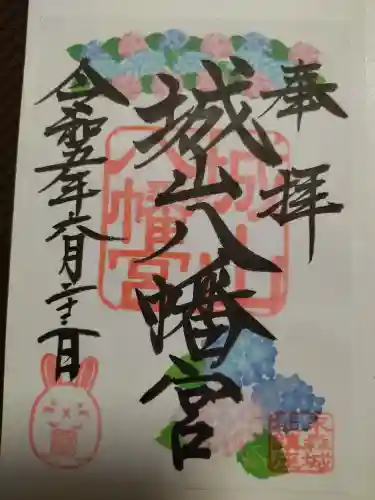 奉拝
城山八幡宮
令和五年六月二十二日
城山八幡宮